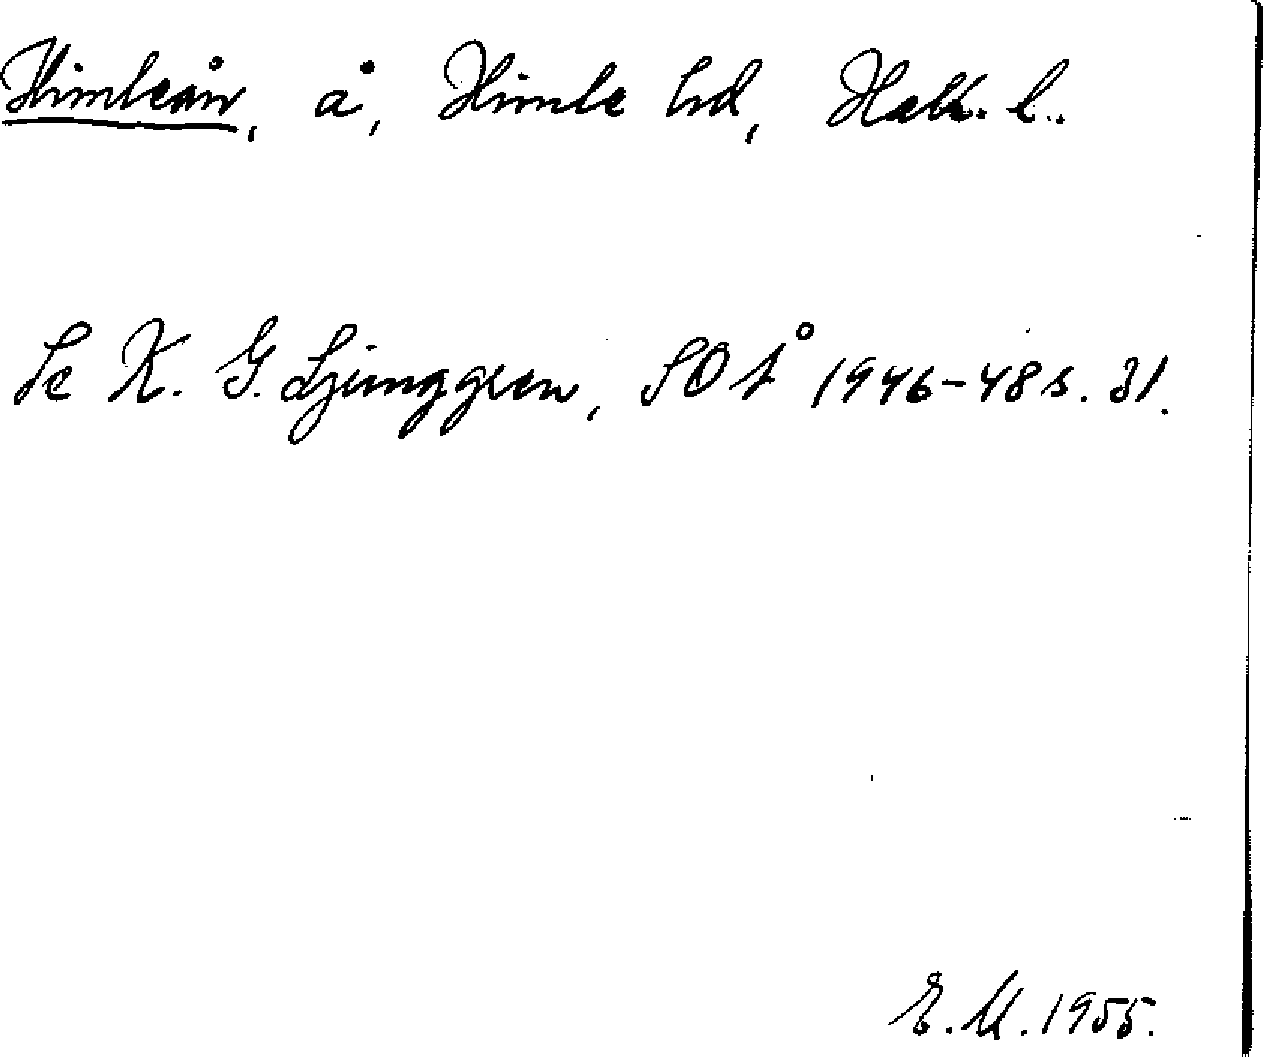 Himleån, å, Himle hd, Hall. l.
Se K. G. Ljunggren, SOÅ 1946-48 s. 31.
E. M. 1955.